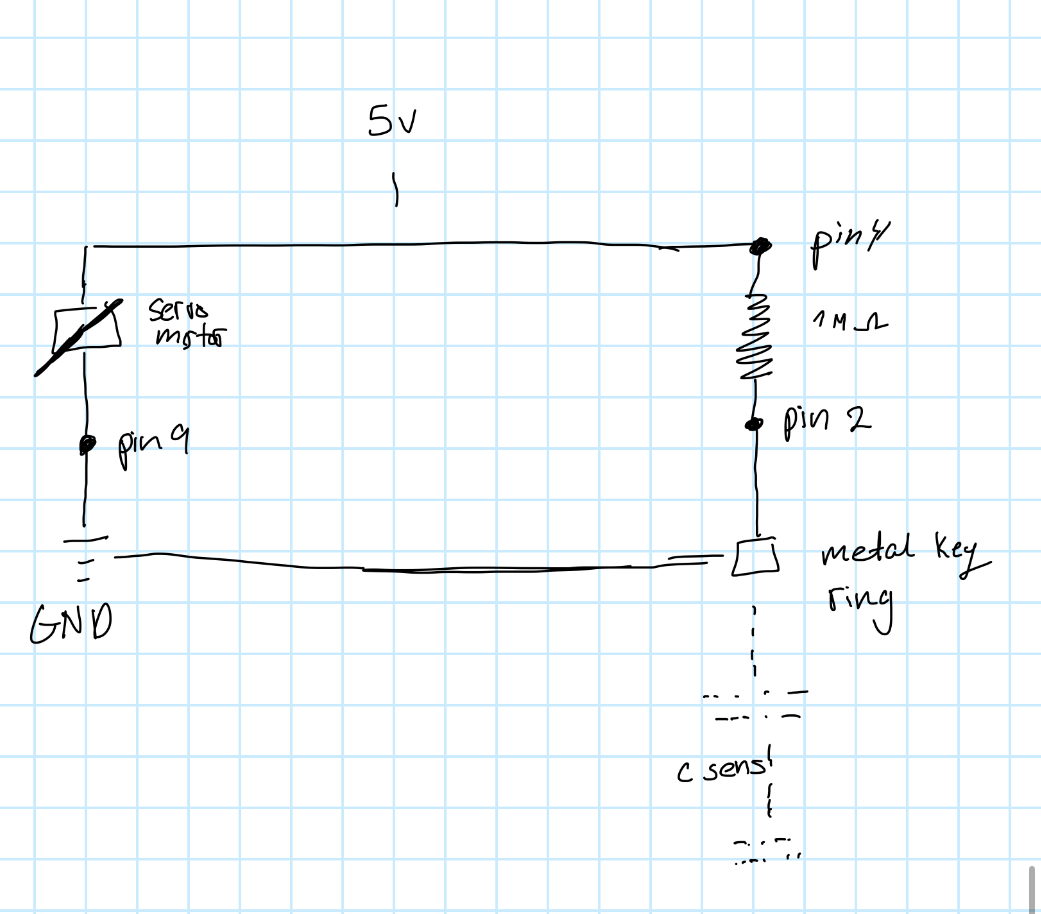 5v
pin 4
servo
motor
1 M Ω
pin 2
pin 9
metal key
ring
GND
c sens